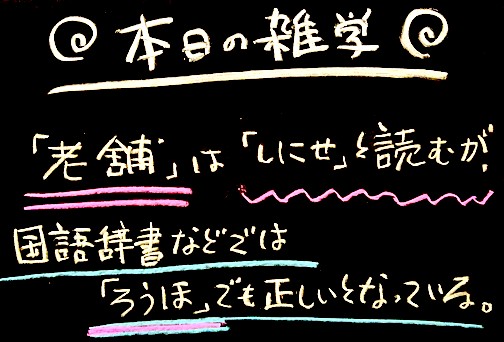 本日の雑学
「老舗」は「しにせ」と読むが、
国語辞書などでは
「ろうほ」でも正しいとなっている。